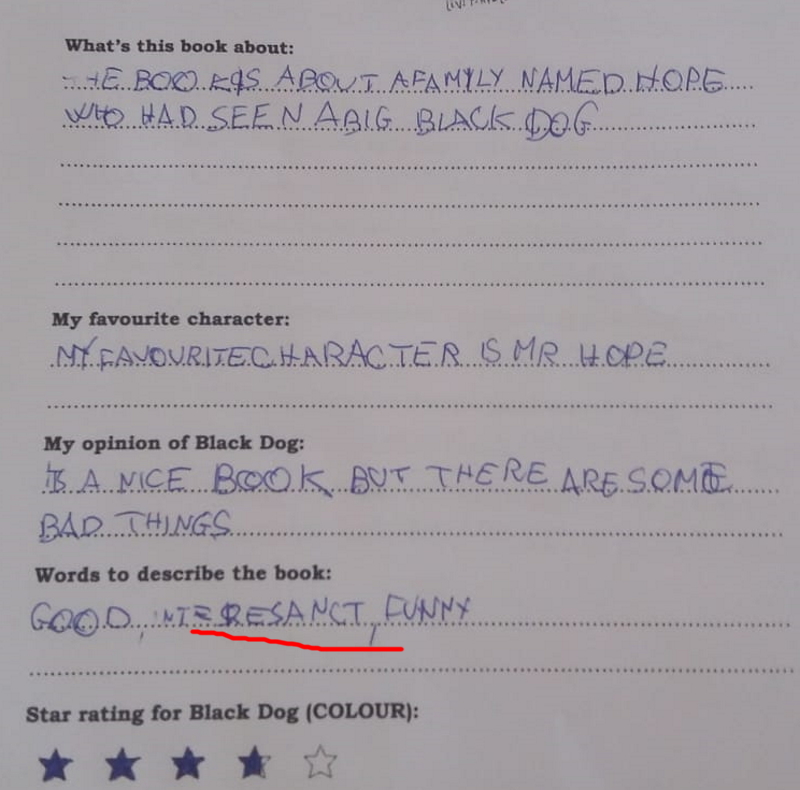 What's this book about:
THE BOOK IS ABOUT A FAMYLY NAMED HOPE
WHO HAD SEEN A BIG BLACK DOG
My favourite character:
MY FAVOURITE CHARACTER IS MR HOPE
My opinion of Black Dog:
IS A NICE BOOK BUT THERE ARE SOME
BAD THINGS
Words to describe the book:
GOOD, INTERESANCT, FUNNY
Star rating for Black Dog (COLOUR):